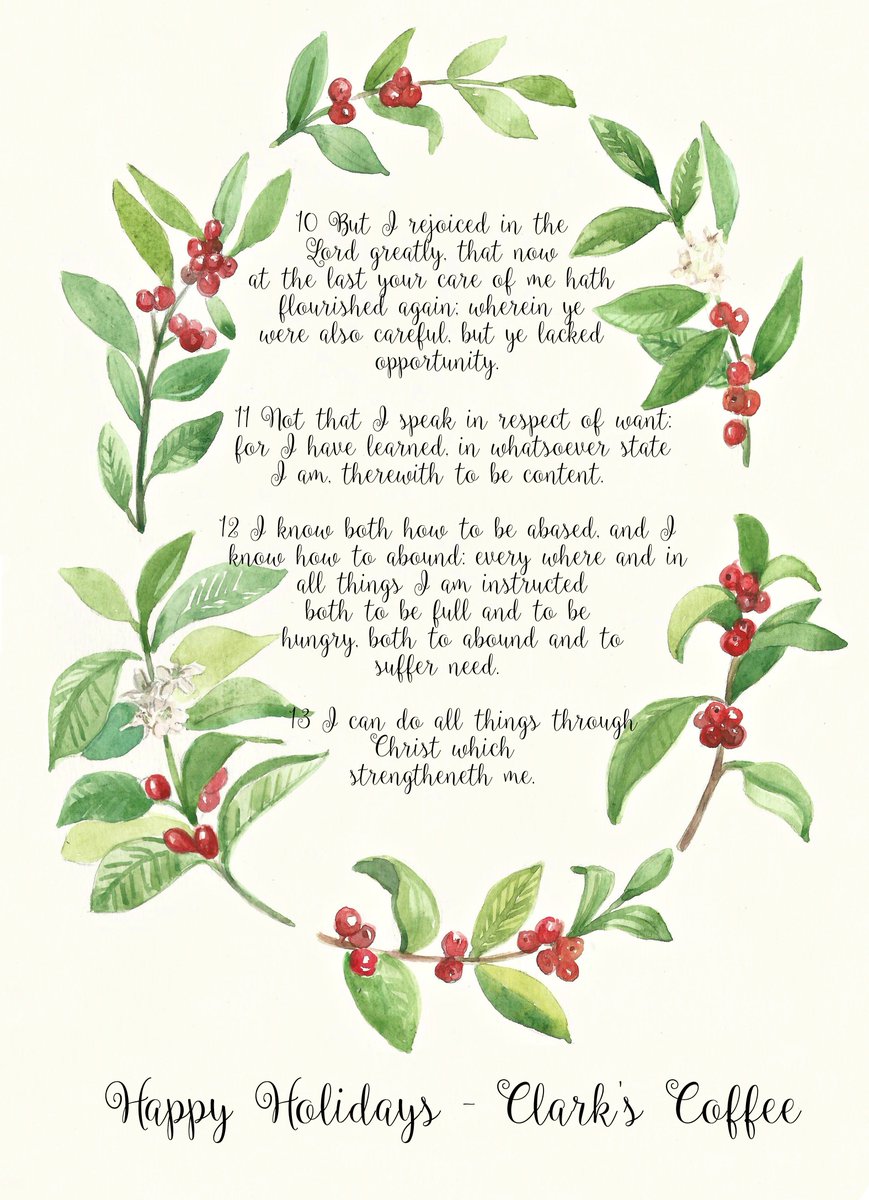 10 But I rejoiced in the
Lord greatly, that now
at the last your care of me hath
flourished again; wherein ye
were also careful, but ye lacked
opportunity.
11 Not that I speak in respect of want:
for I have learned, in whatsoever state
I am, therewith to be content.
12 I know both how to be abased, and I
know how to abound: every where and in
all things I am instructed
both to be full and to be
hungry, both to abound and to
suffer need.
13 I can do all things through
Christ which
strengtheneth me.
Happy Holidays - Clark's Coffee